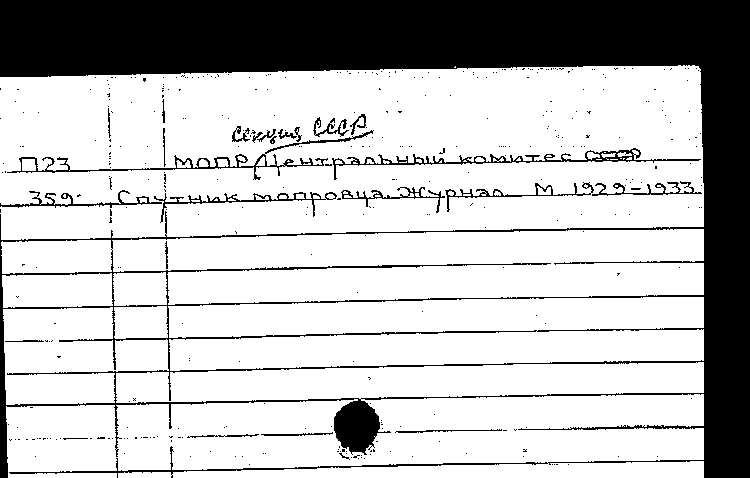 секция СССР
П23 МОПР Центральный комитет СССР
359. Спутник мопровца. Журнал М 1929-1933